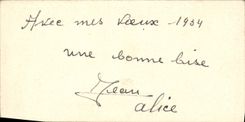 Avec mes vœux - 1934
une bonne bise
Jean
alice